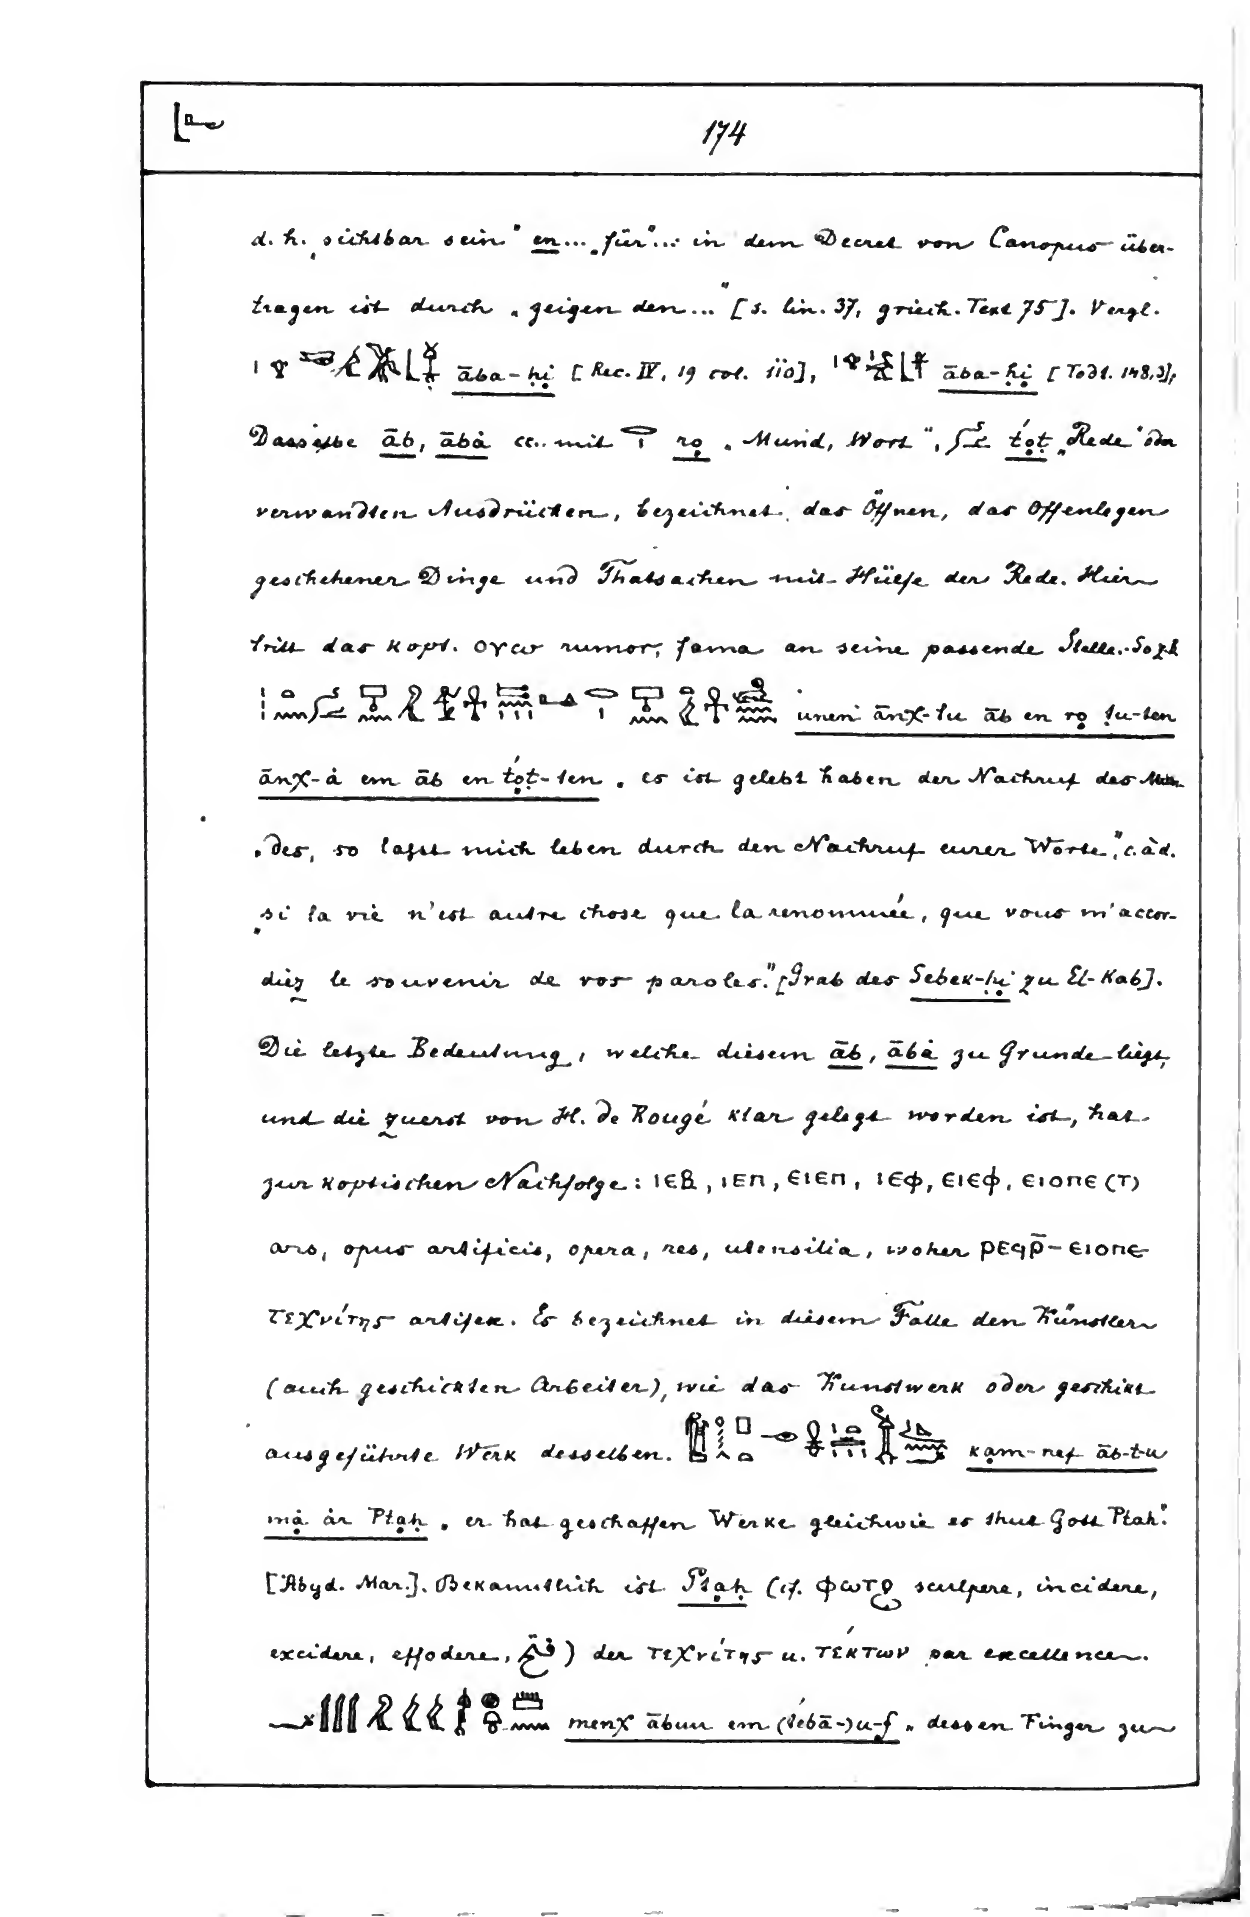 174
d. h. „sichtbar sein“ en... „für“... in dem Decret von Canopus über-
tragen ist durch „zeigen den...“ [s. lin. 37, griech. Text 75]. Vergl.
āba-ḥi̩ [Rec. IV, 19 col. 110], āba-ḥi̩ [Todt. 148,3],
Dasselbe āb, ābȧ cc. mit rọ „Mund, Wort“, t́ọṭ „Rede“ oder
verwandten Ausdrücken, bezeichnet das Öffnen, das Offenlegen
geschehener Dinge und Thatsachen mit Hülfe der Rede. Hier
tritt das kopt. ⲟⲩⲱ rumor, fama an seine passende Stelle. So z.B.
unen ānχ-tu āb en rọ tu-ten
ānχ-ȧ em āb en t́ọṭ-ten „es ist gelebt haben der Nachruf des Mun-
„des, so lasst mich leben durch den Nachruf eurer Worte“, c.àd.
„si la vie n'est autre chose que la renommée, que vous m'accor-
diez le souvenir de vos paroles.“ [Grab des Sebek-ḥi̩ zu El-Kab].
Die letzte Bedeutung, welche diesem āb, ābȧ zu Grunde liegt,
und die zuerst von H. de Rougé klar gelegt worden ist, hat
zur koptischen Nachfolge: ⲓⲉⲃ, ⲓⲉⲡ, ⲉⲓⲉⲡ, ⲓⲉⲫ, ⲉⲓⲉⲫ, ⲉⲓⲟⲡⲉ (ⲧ)
ars, opus artificis, opera, res, utensilia, woher ⲣⲉϥⲣ̄-ⲉⲓⲟⲡⲉ
τεχνίτης artifex. Es bezeichnet in diesem Falle den Künstler
(auch geschickten Arbeiter), wie das Kunstwerk oder geschikt
ausgeführte Werk desselben. kạm-nef āb-t-u
mȧ ȧr Ptạḥ „er hat geschaffen Werke gleichwie es thut Gott Ptah“.
[Abyd. Mar.]. Bekanntlich ist Ptạḥ (cf. ⲫⲱⲧϩ sculpere, incidere,
excidere, effodere, فتح) der τεχνίτης u. τέκτων par excellence.
menχ ābuu em (t́ebā-)u-f „dessen Finger zu